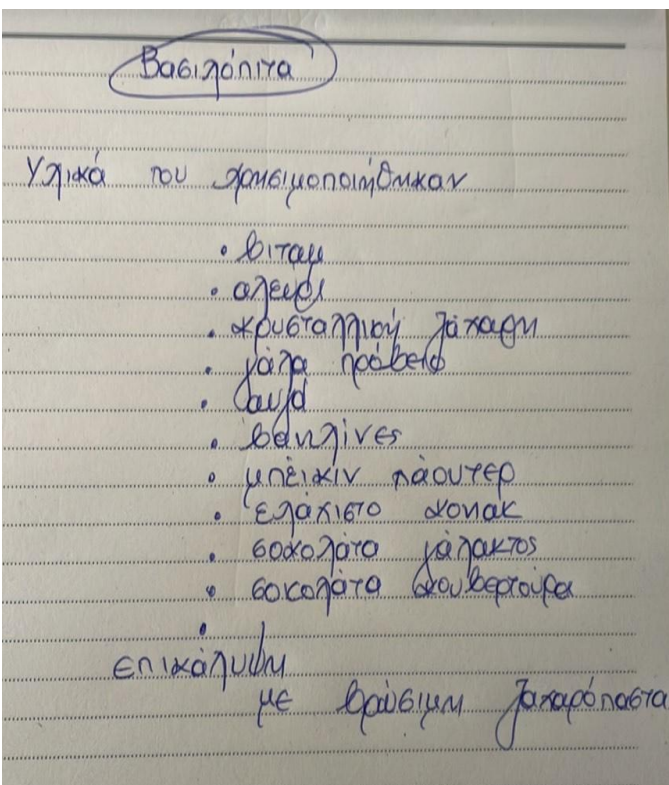 Βασιλόπιτα
Υλικά που χρησιμοποιήθηκαν
• βιταμ
• αλεύρι
• κρυσταλλική ζάχαρη
• γάλα πρόβειο
• αυγά
• βανιλίνες
• μπέικιν πάουτερ
• ελάχιστο κονιακ
• σοκολάτα γάλακτος
• σοκολάτα κουβερτούρα
•
επικάλυψη
με βρώσιμη ζαχαρόπαστα